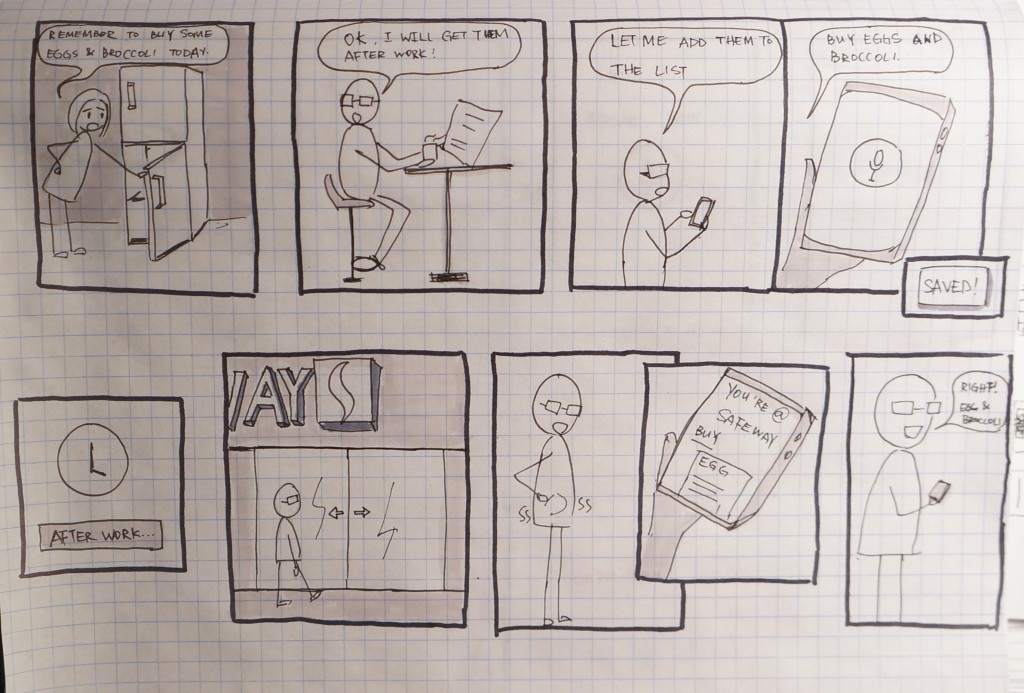 REMEMBER TO BUY SOME
EGGS & BROCCOLI TODAY.
OK, I WILL GET THEM
AFTER WORK!
LET ME ADD THEM TO
THE LIST
BUY EGGS AND
BROCCOLI.
SAVED!
AFTER WORK...
WAY S
SS
SS
YOU'RE @
SAFEWAY
BUY
EGG
RIGHT!
EGG &
BROCCOLI